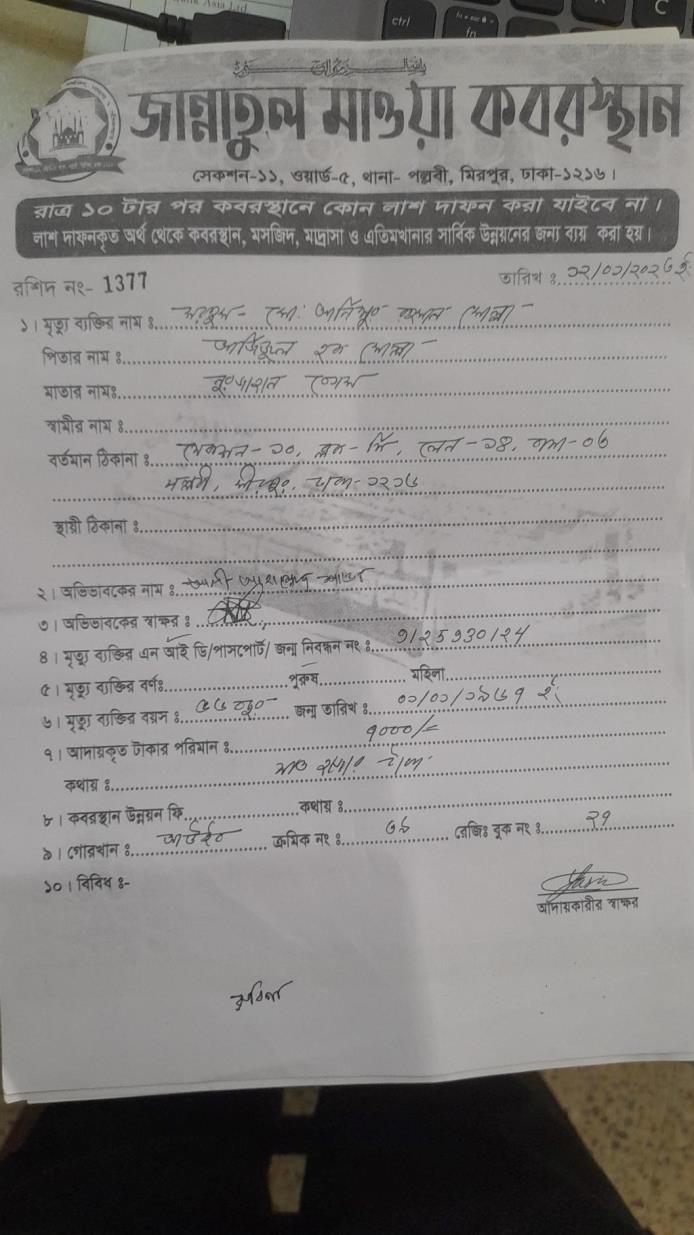 জান্নাতুল মাওয়া কবরস্থান
সেকশন-১১, ওয়ার্ড-৫, থানা- পল্লবী, মিরপুর, ঢাকা-১২১৬।
রাত্র ১০ টার পর কবরস্থানে কোন লাশ দাফন করা যাইবে না।
লাশ দাফনকৃত অর্থ থেকে কবরস্থান, মসজিদ, মাদ্রাসা ও এতিমখানার সার্বিক উন্নয়নের জন্য ব্যয় করা হয়।
রশিদ নং- 1377 তারিখ ঃ
১। মৃত্যু ব্যক্তির নাম ঃ মরহুম- মো: রহমান মোল্লা
পিতার নাম ঃ হক মোল্লা
মাতার নামঃ বেগম
স্বামীর নাম ঃ
বর্তমান ঠিকানা ঃ সেকশন-১০, ব্লক-সি, লেন-১৪, বাসা-০৬
পল্লবী, মিরপুর, ঢাকা-১২১৬
স্থায়ী ঠিকানা ঃ
২। অভিভাবকের নাম ঃ
৩। অভিভাবকের স্বাক্ষর ঃ
৪। মৃত্যু ব্যক্তির এন আই ডি/পাসপোর্ট/ জন্ম নিবন্ধন নং ঃ 9125930124
৫। মৃত্যু ব্যক্তির বর্ণঃ পুরুষ মহিলা
৬। মৃত্যু ব্যক্তির বয়স ঃ জন্ম তারিখ ঃ
৭। আদায়কৃত টাকার পরিমান ঃ ৭০০০/=
কথায় ঃ সাত হাজার টাকা
৮। কবরস্থান উন্নয়ন ফি কথায় ঃ
৯। গোরস্থান ঃ ক্রমিক নং ঃ ৩৯ রেজিঃ বুক নং ঃ ২৭
১০। বিবিধ ঃ-
আদায়কারীর স্বাক্ষর